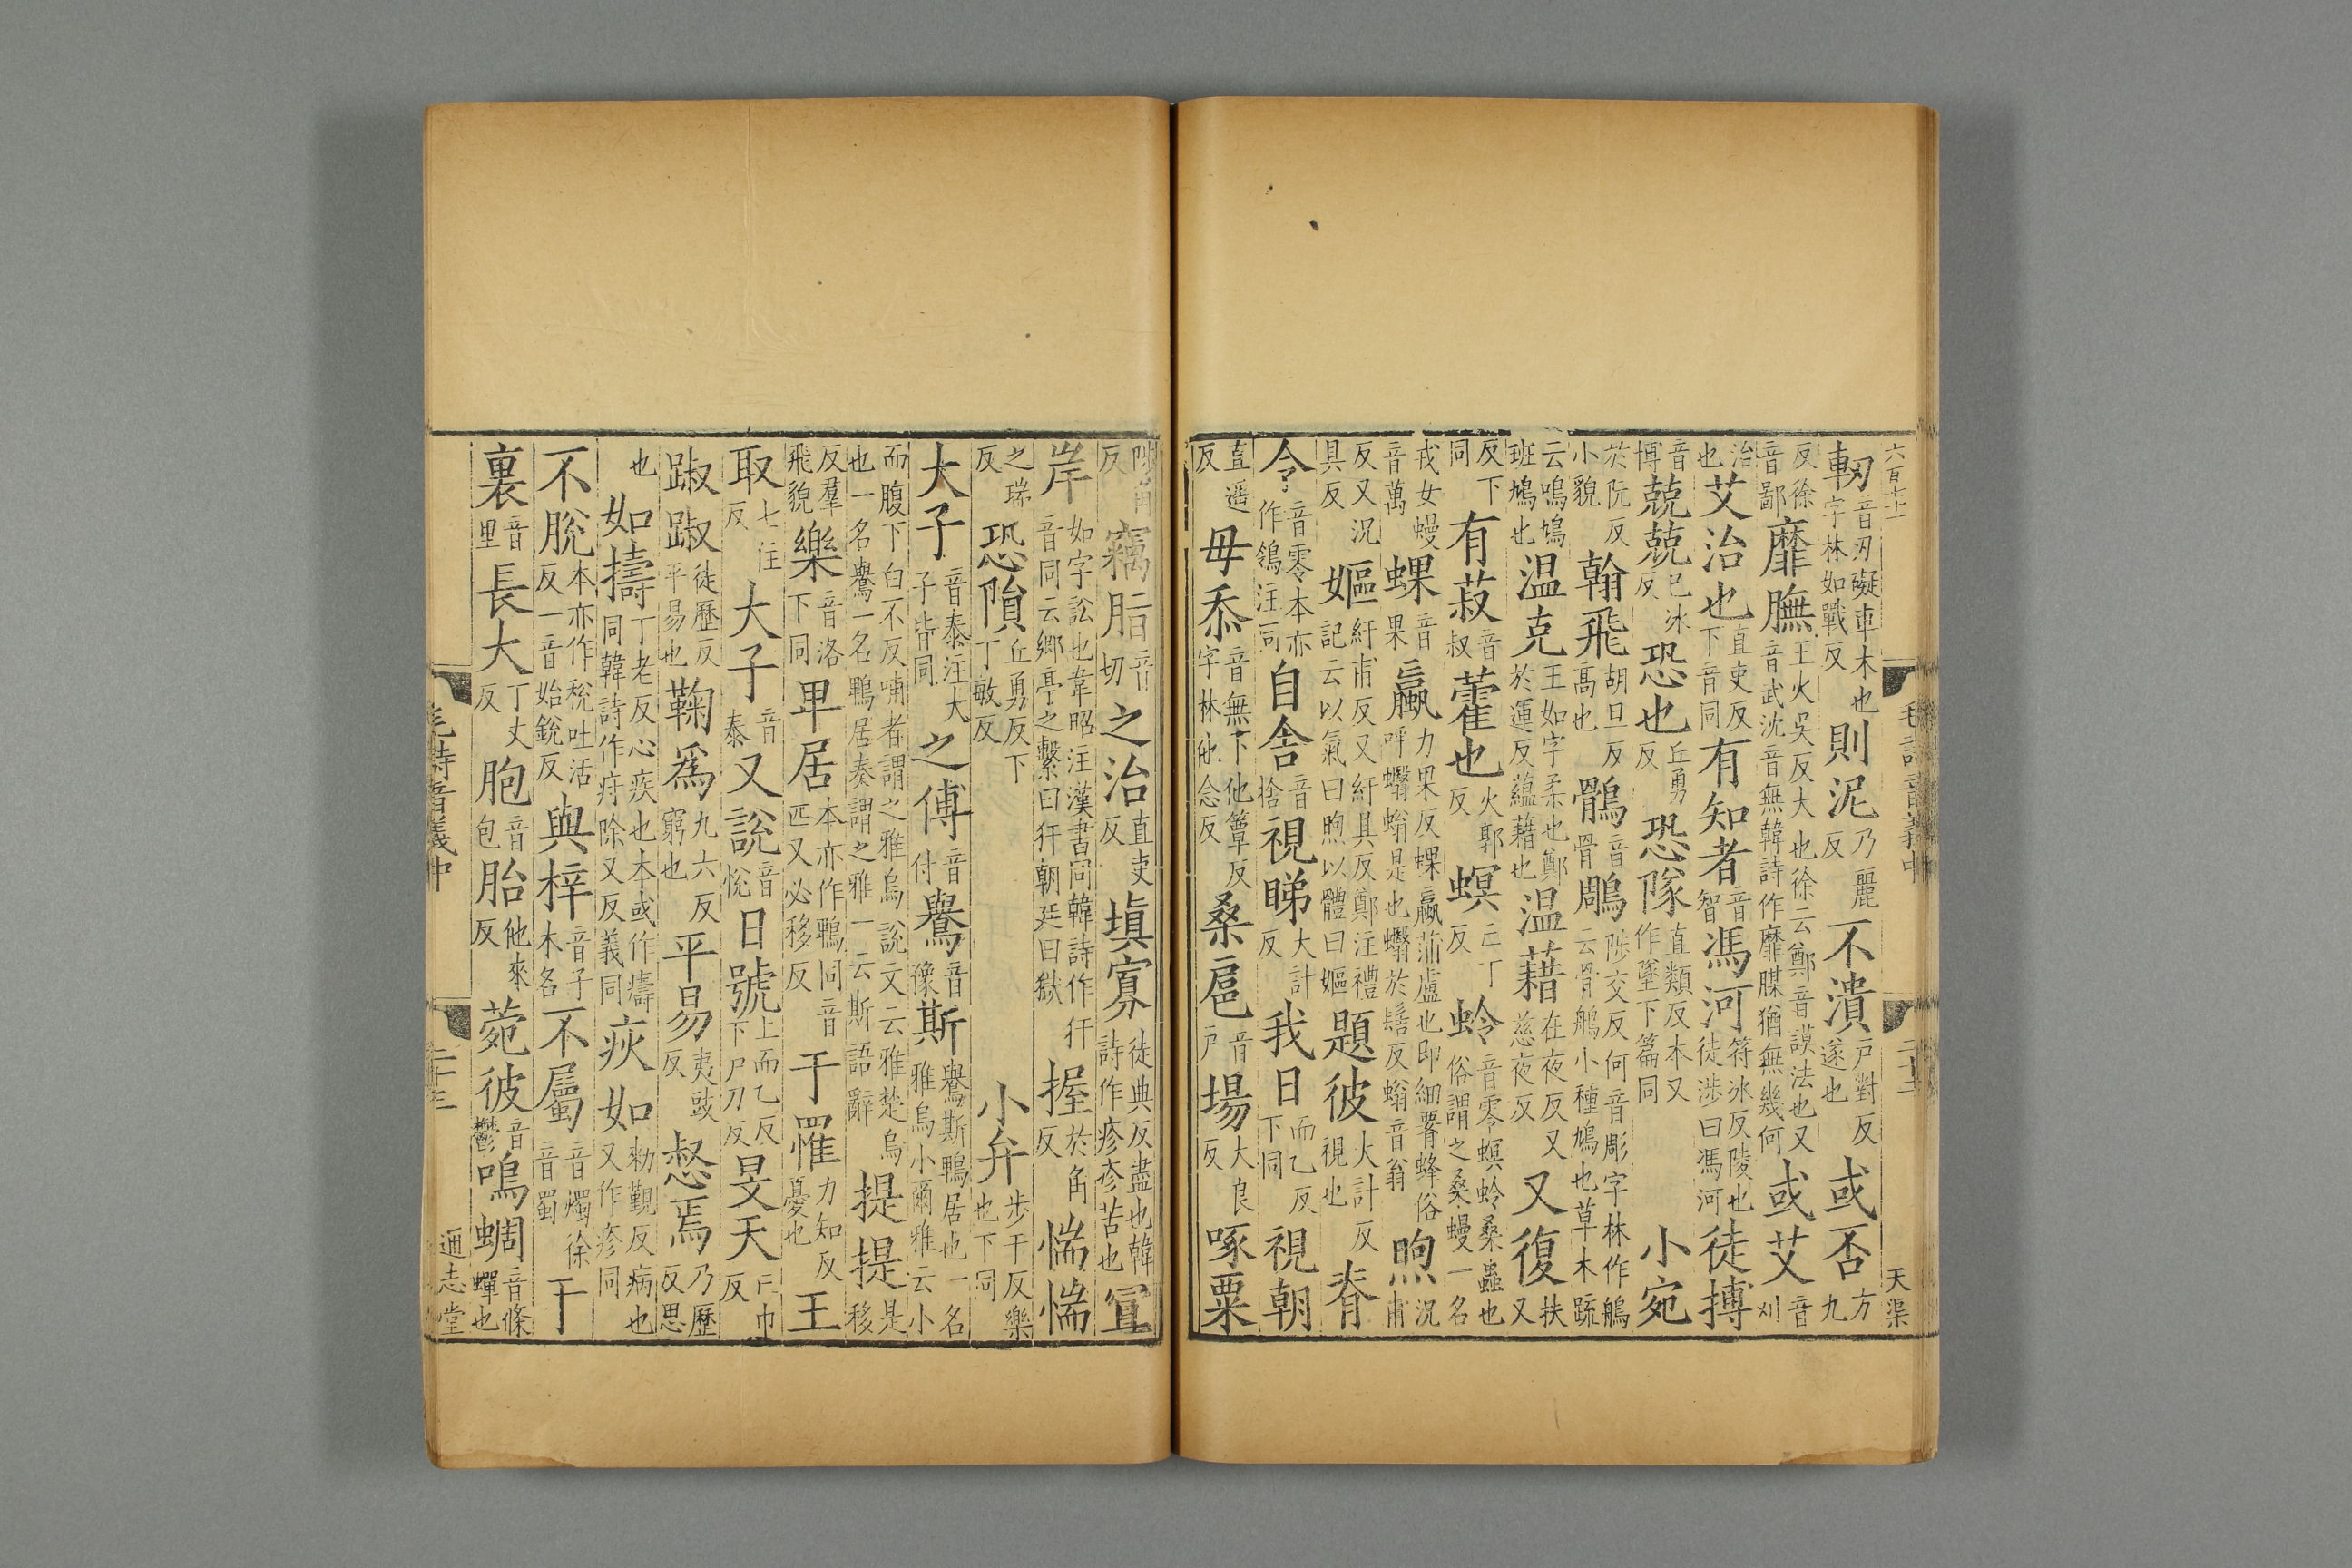 六百七十 毛詩音義中 二十二 天渠
軔音刃礙車木也字林如戰反則泥乃麗反不潰戶對反遂也或否方九
反徐音鄙靡膴王火吳反大也徐云鄭音謨法也又音武沈音無韓詩作靡腜猶無幾何或艾音刈
治也艾治也直吏反下音同有知者音智馮河符冰反陵也徒涉曰馮河徒搏
音博兢兢已冰反恐也丘勇反恐隊直類反本又作墜下篇同小宛
於阮反小貌翰飛胡旦反高也鶻音骨鵰陟交反何音彫字林作鵃云骨鵃小種鳩也草木疏
云鳴鳩班鳩也温克王如字柔也鄭於運反蘊藉也温藉在夜反又慈夜反又復扶又
反下同有菽音叔藿也火郭反螟亡丁反蛉音零螟蛉桑蟲也俗謂之桑蟃一名
戎女蟃音萬蜾音果蠃力果反蜾蠃蒲盧也即細要蜂俗呼蠮螉是也蠮於髻反螉音翁煦況甫
反又況具反嫗紆甫反又紆具反鄭注禮記云以氣曰煦以體曰嫗題彼大計反視也脊
令音零本亦作鴒注同自舍音捨視睇大計反我日而乙反下同視朝
直遥反毋忝音無下他簟反字林他念反桑扈音戶場大良反啄粟
陟角反竊脂音切之治直吏反填寡徒典反盡也韓詩作疹疹苦也宜
岸如字訟也韋昭注漢書同韓詩作犴音同云鄉亭之繫曰犴朝廷曰獄握於角反惴惴
之瑞反恐隕丘勇反下丁敏反小弁步干反樂也下同
大子音泰注大子皆同之傅音付鸒音豫斯鸒斯鵯居也一名雅烏小爾雅云小
而腹下白不反哺者謂之雅烏說文云雅楚烏也一名鸒一名鵯居秦謂之雅一云斯語辭提提是移
反羣飛貌樂音洛下同卑居本亦作鵯同音匹又必移反于罹力知反憂也王
取七住反大子音泰又說音悅日號上而乙反下戶刀反旻天亡巾反
踧踧徒歷反平易也鞠爲九六反窮也平易夷豉反惄焉乃歷反思
也如擣丁老反心疾也本或作𤻮同韓詩作疛除又反義同疢如勑覲反病也又作疹同
不脫本亦作稅吐活反一音始銳反與梓音子木名不屬音燭徐音蜀于
裏音里長大丁丈反胞音包胎他來反菀彼音鬱鳴蜩音條蟬也
毛詩音義中 二十三 通志堂